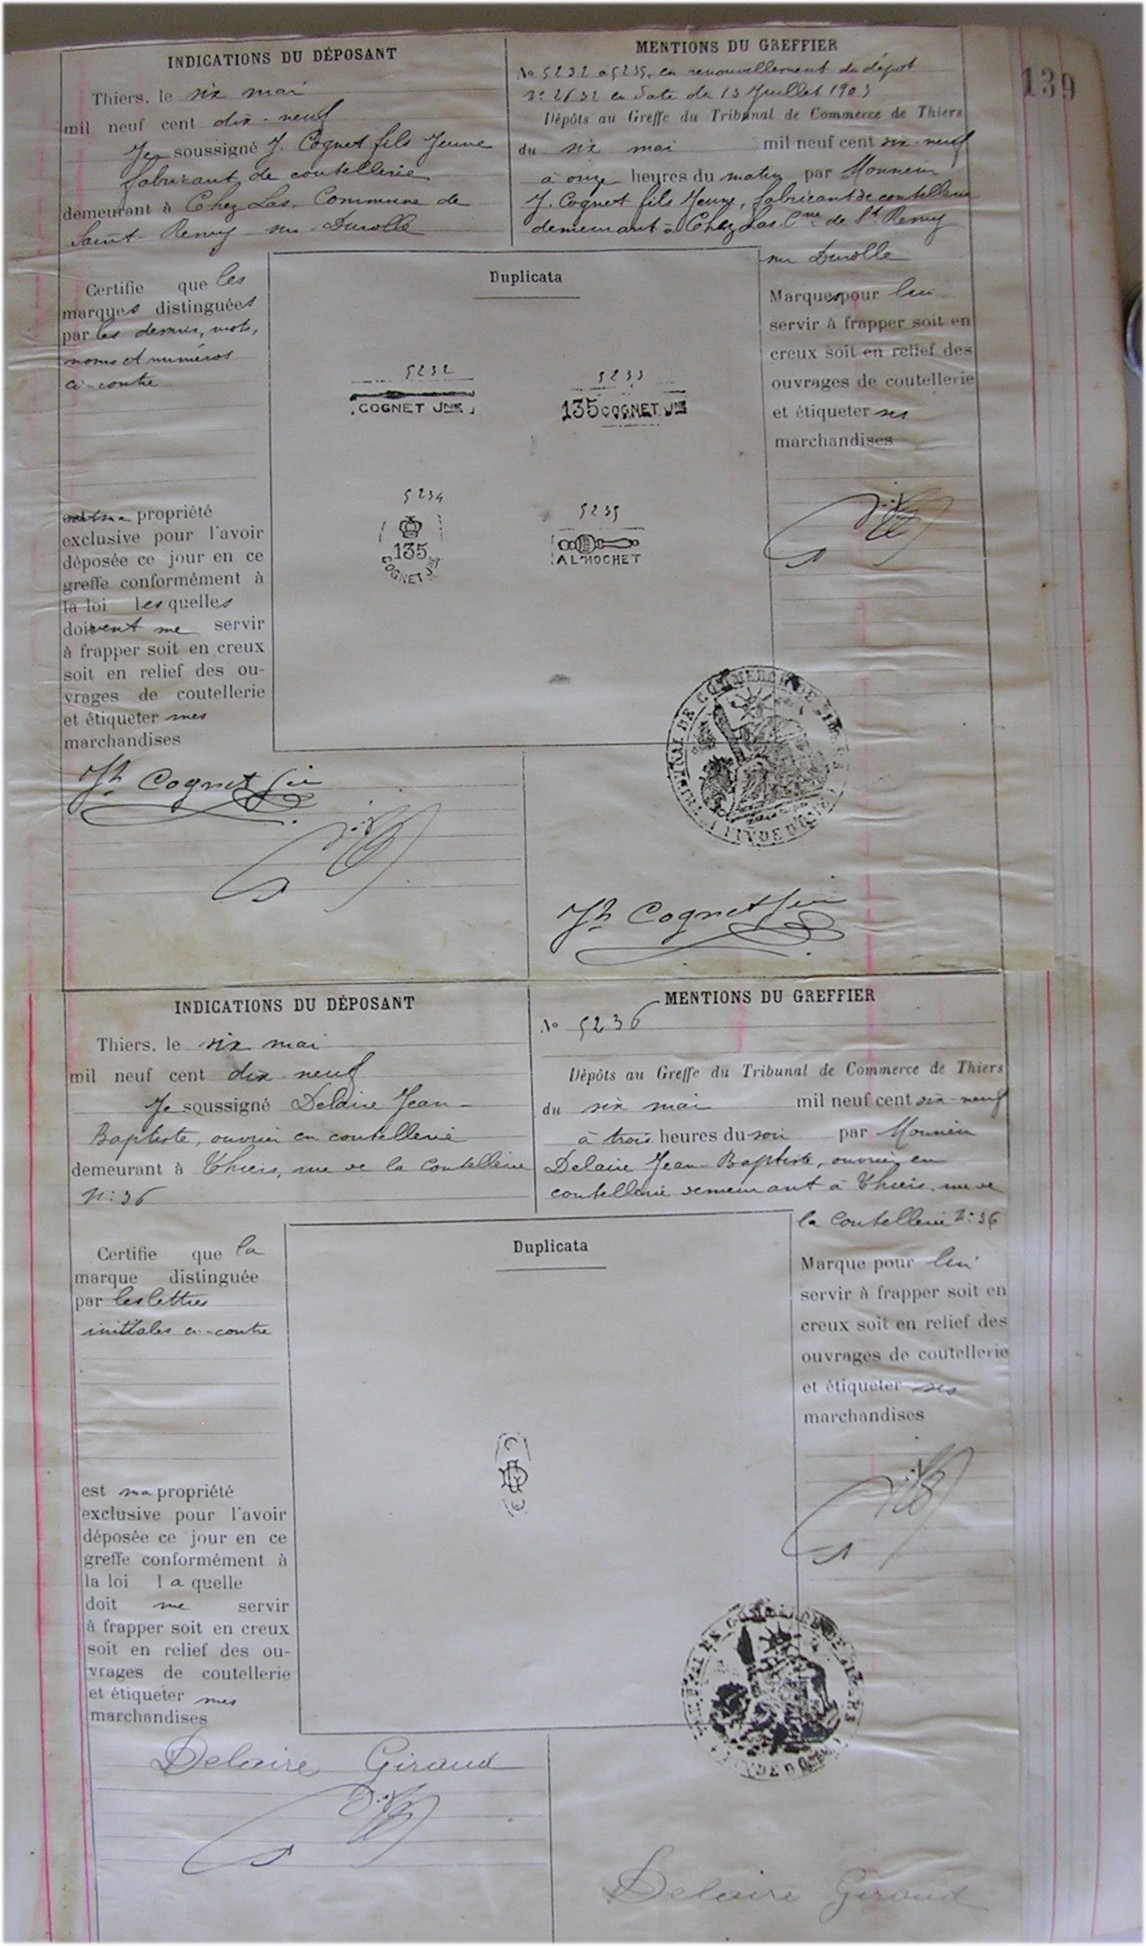 139
INDICATIONS DU DÉPOSANT
Thiers, le six mai
mil neuf cent dix-neuf
Je soussigné J. Cognet fils Jeune
fabricant de coutellerie
demeurant à Chez Las, Commune de
Saint Remy sur Durolle
MENTIONS DU GREFFIER
No 5232 à 5235, en renouvellement du dépôt
No 2632 en date du 13 Juillet 1903
Dépôts au Greffe du Tribunal de Commerce de Thiers
du six mai mil neuf cent dix-neuf
à onze heures du matin par Monsieur
J. Cognet fils Jeune, fabricant de coutellerie
demeurant à Chez Las Cne de St Remy
sur Durolle
Certifie que les
marques distinguées
par les dessins, mots,
noms et numéros
ci-contre
est ma propriété
exclusive pour l'avoir
déposée ce jour en ce
greffe conformément à
la loi lesquelles
doivent me servir
à frapper soit en creux
soit en relief des ou-
vrages de coutellerie
et étiqueter mes
marchandises
Duplicata
5232
COGNET JNE
5233
135 COGNET JNE
5234
135
COGNET JNE
5235
AL'HOCHET
Marques pour lui
servir à frapper soit en
creux soit en relief des
ouvrages de coutellerie
et étiqueter ses
marchandises
TRIBUNAL DE COMMERCE DE THIERS
PUY DE DÔME
Jh Cognet
Jh Cognet
INDICATIONS DU DÉPOSANT
Thiers, le six mai
mil neuf cent dix neuf
Je soussigné Delaire Jean-
Baptiste, ouvrier en coutellerie
demeurant à Thiers, rue de la Coutellerie
No 36
MENTIONS DU GREFFIER
No 5236
Dépôts au Greffe du Tribunal de Commerce de Thiers
du six mai mil neuf cent dix-neuf
à trois heures du soir par Monsieur
Delaire Jean-Baptiste, ouvrier en
coutellerie demeurant à Thiers, rue de
la Coutellerie No 36
Certifie que la
marque distinguée
par les lettres
initiales ci-contre
est ma propriété
exclusive pour l'avoir
déposée ce jour en ce
greffe conformément à
la loi laquelle
doit me servir
à frapper soit en creux
soit en relief des ou-
vrages de coutellerie
et étiqueter mes
marchandises
Duplicata
Marque pour lui
servir à frapper soit en
creux soit en relief des
ouvrages de coutellerie
et étiqueter ses
marchandises
Delaire Giraud
Delaire Giraud